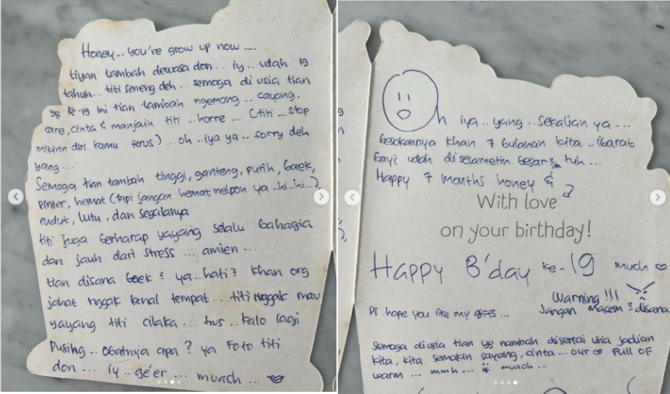 Honey.. you're grow up now ....
tiyan tambah dewasa don... iy.. udah 19
tahun... titi seneng deh.. semoga di usia tian
yg ke-19 ini tian tambah ngemong.. sayang,
care, cinta & manjain titi.. horre... (titi... stop
mikirin diri kamu terus)... oh.. iya ya.. sorry deh
yang...
Semoga tian tambah tinggi, ganteng, putih, baek,
pinter, hemat (tapi jangan hemat nelpon ya..hi..hi..)
endut, lutu, dan segalanya
titi juga berharap yayang selalu bahagia
dan jauh dari stress ... amien...
tian disana baek² ya..hati² khan org
jahat nggak kenal tempat... titi nggak mau
yayang titi cilaka... trus.. kalo lagi
pusing.. obatnya apa? ya Foto titi
don... iy.. ge'er... muach...
Oh iya..yang..sekalian ya...
besoknya khan 7 bulanan kita.. ibarat
bayi udah di selametin besar² tuh...
Happy 7 months honey &
With love
on your birthday!
Happy B'day ke-19 much
Warning!!!
Jangan macem² disana
hope you like my gifts...
Semoga diusia tian yg nambah disertai usia jadian
kita, kita semakin sayang, cinta... our full of
warm... mmh... muach...